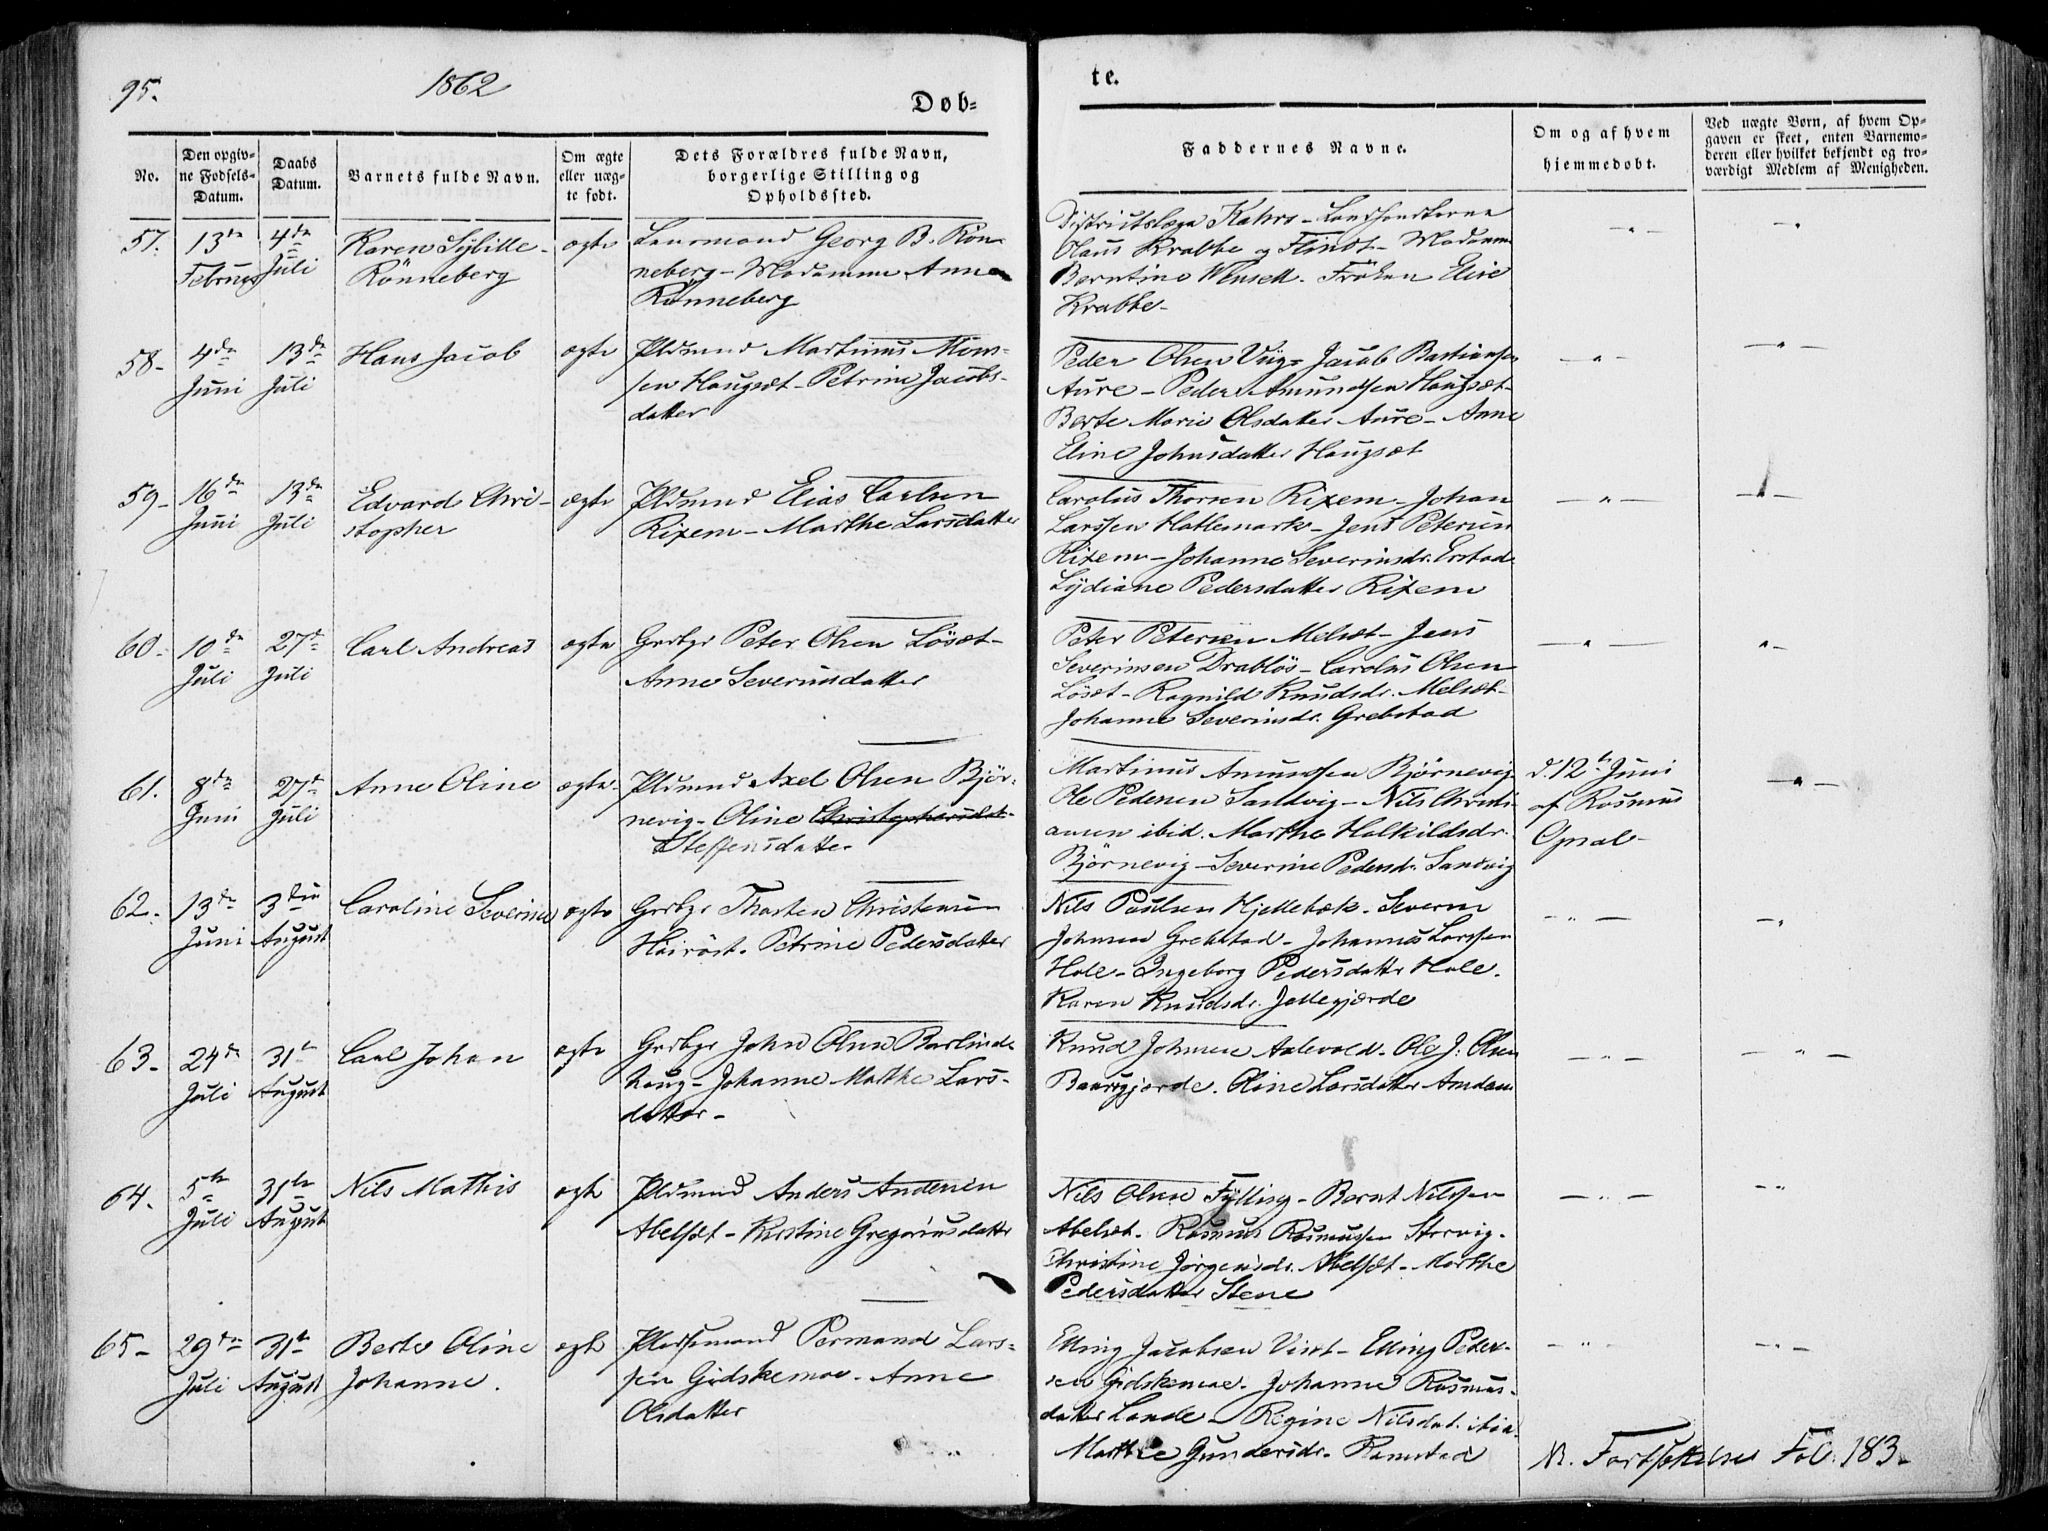 95.
1862
Døb-
te.
No.
Den opgiv-
ne Fødsels-
Datum.
Daabs
Datum.
Barnets fulde Navn.
Om ægte
eller uæg-
te født.
Dets Forældres fulde Navn,
borgerlige Stilling og
Opholdssted.
Faddernes Navne.
Om og af hvem
hjemmedøbt.
Ved uægte Børn, af hvem Op-
gaven er skeet, enten Barnemo-
deren eller hvilket bekjendt og tro-
værdigt Medlem af Menigheden.
57.
13de
Februar
4de
Juli
Karen Sybille
Rönneberg
ægte
Georg B. Rön-
neberg - Madamme Anna
Rönneberg
Districtslæge Kahrs -
Claus Krabbe og Flindt - Madamme
Berntine - Fröken Elise
Krabbe -
58-
4de
Juni
13de
Juli
Hans Jacob
ægte
Pldsmnd Martinus Mons-
sen Haugsæt - Petrine Jacobs-
datter
Peder Olsen Viig - Jacob Bastiansen
Aure - Peder Amundsen Haugsæt -
Berte Marie Olsdatter Aure - Anne
Eline Johnsdatter Haugsæt
59-
16de
Juni
13de
Juli
Edvard Chri-
stopher
ægte
Pldsmnd Elias Carlsen
Rixem - Marthe Larsdatter
Carolus Thorsen Rixem - Johan
Larssen Hatlemark - Jens Petersen
Rixem - Johanne Severinsdr. Erstad
Lydiane Pedersdatter Rixem
60-
10de
Juli
27de
Juli
Carl Andreas
ægte
Grdbgr Peter Olsen Lösæt -
Anne Severinsdatter
Peter Petersen Melsæt - Jens
Severinsen Drabløs - Carolus Olsen
Løsæt - Ragnild Knudsdr. Melsæt -
Johanne Severinsdr. Grebstad
61.
8de
Juni
27de
Juli
Anne Oline
ægte
Pldsmnd Axel Olsen Bjør-
nevig - Oline Christophersdtr -
Steffensdatter
Martinus Amundsen Bjørnevig
Ole Pedersen Sandvig - Nils Christi-
ansen ibid. Marthe Halkildsdr.
Bjørnevig - Severine Pedersdr. Sandvig
d. 12te Juni
af Rasmus
Opsal -
62-
13de
Juni
3die
August
Caroline Severine
ægte
Grdbgr Thosten Christensen
Höiröst. Petrine Pedersdatter
Nils Paulsen Hjellebæk. Severin
Johnsen Grebstad - Johannes Larssen
Hole - Ingeborg Pedersdatter Hole.
Karen Knudsdr. Jellegjærde
63-
24de
Juli
31te
August
Carl Johan
ægte
Grdbgr John Olsen Barlind-
houg - Johanne Malthe Lars-
datter -
Knud Johnsen Aalevold. Ole J. Olsen
Baarsgjærde. Oline Larsdatter Amdam
64.
5te
Juli
31te
August
Nils Mathis
ægte
Pldsmnd Anders Andersen
Abelsæt - Kristine Gregoriusdatter
Nils Olsen Fylling - Bernt Nilssen
Abelsæt. Rasmus Rasmussen Storvig.
Christine Jørgensdr. Abelsæt - Marthe
Pedersdatter Stene
65-
29de
Juli
31te
August
Berte Oline
Johanne.
ægte
Pladsmand Permand Lars-
sen Gidskemoe. Anne
Olsdatter
Elling Jacobsen Vist - Elling Peder-
sen Gidskemoe. Johanne Rasmus-
datter Lande - Regine Nilsdat. ibid.
Marthe Gundersdr. Ramstad
Nr. Fortsættelse Fol. 183.